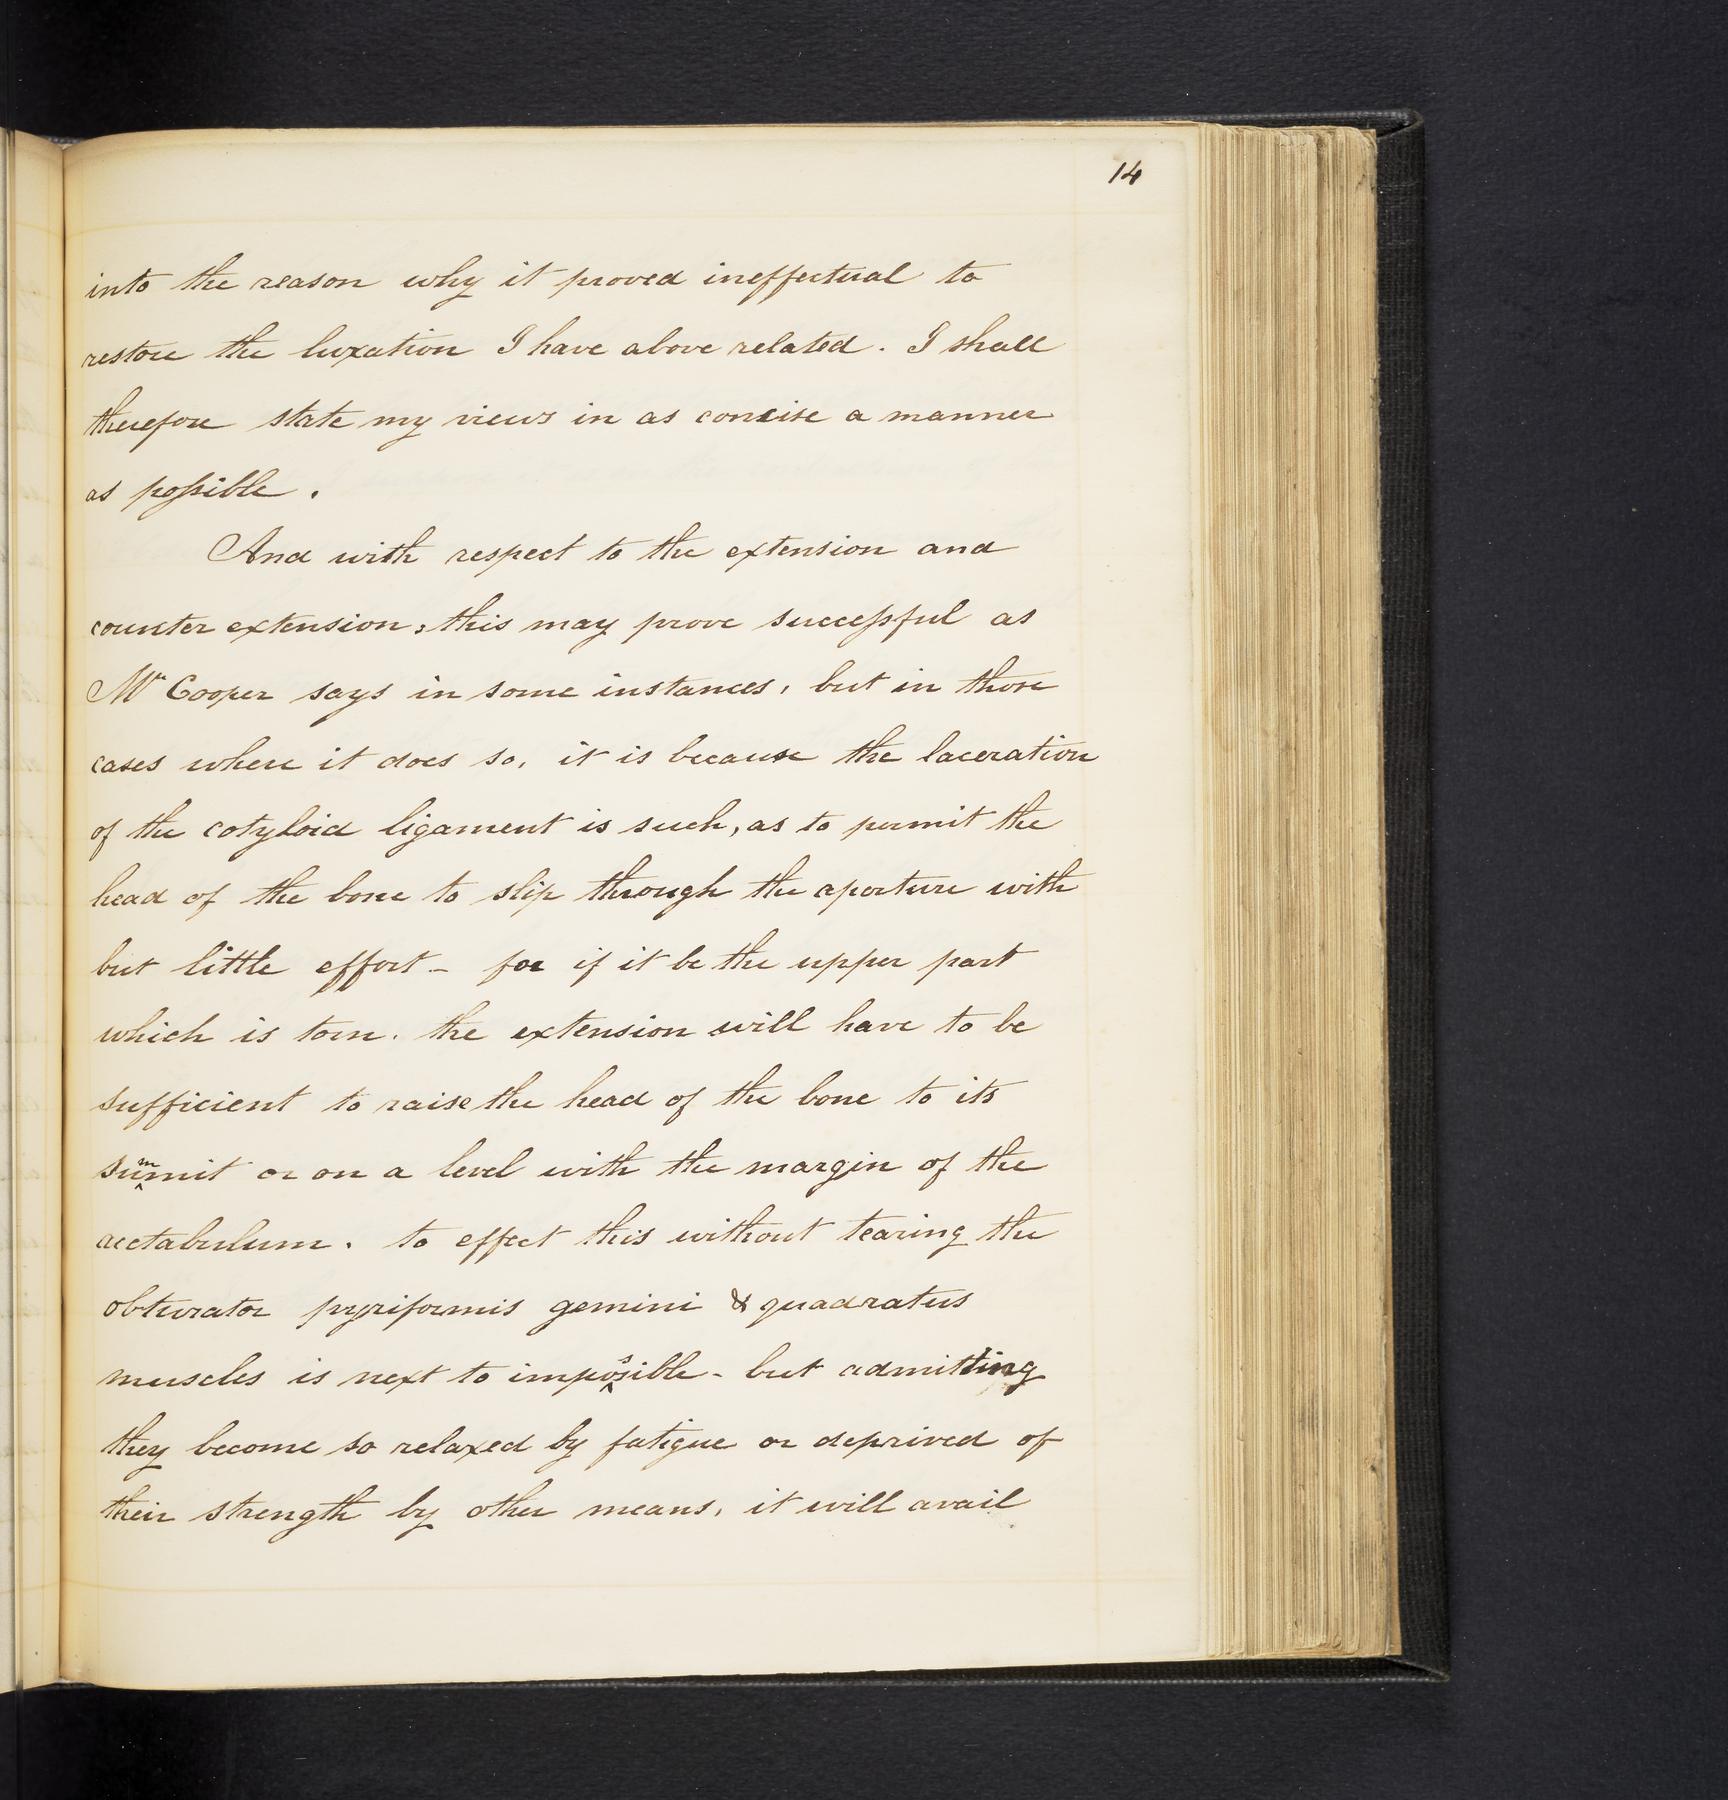 14
into the reason why it proved ineffectual to
restore the luxation I have above related. I shall
therefore state my views in as concise a manner
as possible.
And with respect to the extension and
counter extension, this may prove successful as
Mr Cooper says in some instances, but in those
cases where it does so, it is because the laceration
of the cotyloid ligament is such, as to permit the
head of the bone to slip through the aperture with
but little effort - for if it be the upper part
which is torn. the extension will have to be
sufficient to raise the head of the bone to its
summit or on a level with the margin of the
acetabulum. to effect this without tearing the
obturator pyriformis gemini & quadratus
muscles is next to impossible - but admitting
they become so relaxed by fatigue or deprived of
their strength by other means, it will avail